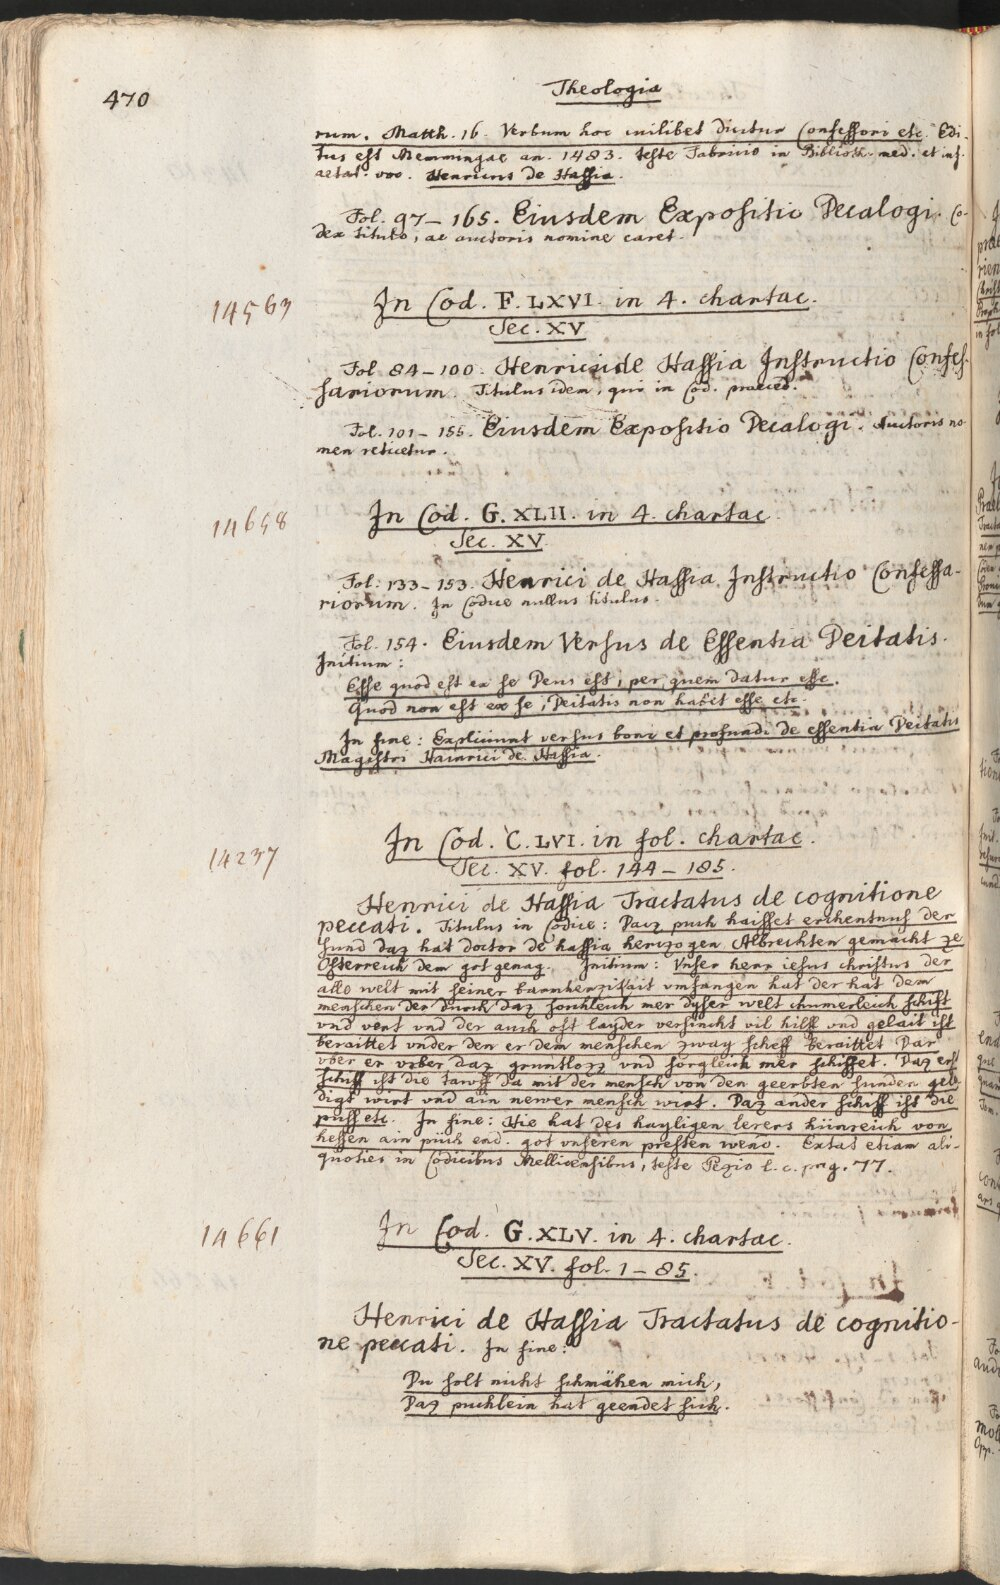 470
Theologia
rum. Matth. 16. Verbum hoc cuilibet dicitur Confessori etc. Edi-
tus est Memmingae an. 1483. teste Fabricio in Biblioth. med. et inf.
aetat. voc. Henricus de Hassia.
Fol. 97–165. Eiusdem Expositio Decalogi. Co-
dex titulo, ac auctoris nomine caret.
14563
In Cod. F. LXVI. in 4. chartac.
Sec. XV
Fol 84–100. Henrici de Hassia Instructio Confes-
sariorum. Titulus idem, qui in Cod. praeced.
Fol. 101–155. Eiusdem Expositio Decalogi. Auctoris no-
men reticetur.
14658
In Cod. G. XLII. in 4. chartac.
Sec. XV.
Fol: 133–153. Henrici de Hassia Instructio Confessa-
riorum. In Codice nullus titulus.
Fol. 154. Eiusdem Versus de Essentia Deitatis.
Initium:
Esse quod est ex se Deus est, per quem datur esse.
Quod non est ex se, Deitatis non habet esse etc
In fine: Expliciunt versus boni et profundi de essentia Deitatis
Magistri Hainrici de Hassia.
14237
In Cod. C. LVI. in fol. chartac.
Sec. XV. fol. 144–185.
Henrici de Hassia Tractatus de cognitione
peccati. Titulus in Codice: Daz puch haisset erchentnus der
sund daz hat doctor de hassia herczogen Albrechten gemacht ze
Österreich dem got genag. Initium: Unser herr iesus christus der
allo welt mit seiner barmherzikait umfangen hat der hat dem
menschen der durch daz sorchleich mer dyser welt chumerleich schift
vnd vert vnd der auch oft layder versinckt vil hilff vnd gelait ist
beraittet vnder den er dem menschen zway scheff beraittet Dar
vber er vber daz gruntlozz vnd sorgleich mer schiffet. Daz erst
schiff ist die tawff da mit der mensch von den geerbten sunden gele-
digt wirt vnd ain newer mensch wirt. Daz ander schiff ist die
puss etc. In fine: Hie hat des hayligen lerers hainreich von
hessen ain püch end. got unseren presten wend. Extat etiam ali-
quoties in Codicibus Mellicensibus, teste Pezio l. c. pag. 77.
14661
In Cod. G. XLV. in 4. chartac.
Sec. XV. fol. 1–85.
Henrici de Hassia Tractatus de cognitio-
ne peccati. In fine:
Du solt nicht schmähen mich,
Daz puchlein hat geendet sich.